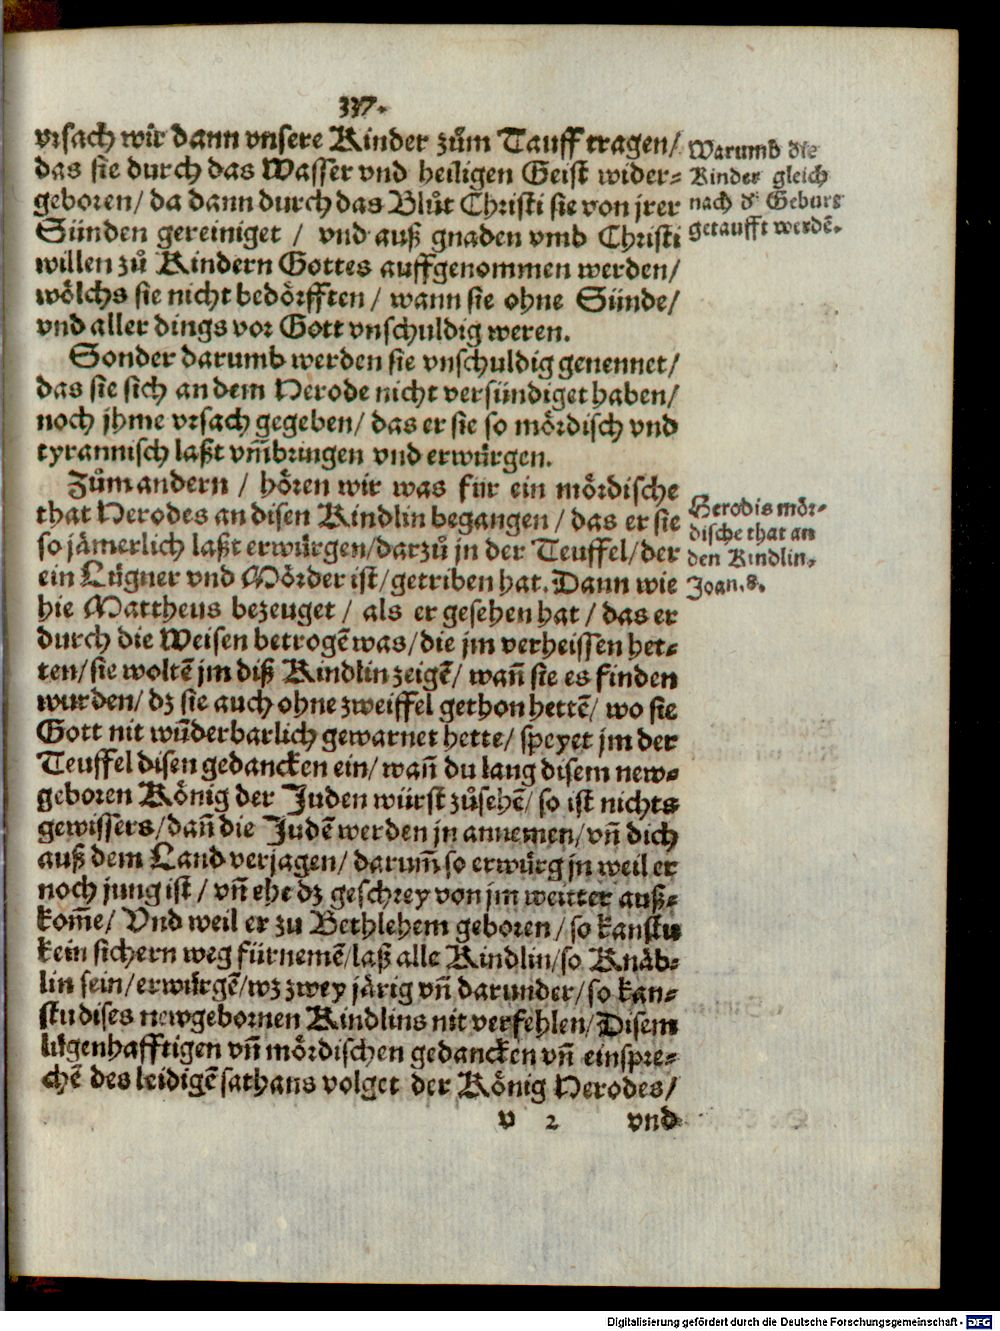 337.
vrsach wir dann vnsere Kinder zům Tauff tragen/
das sie durch das Wasser vnd heiligen Geist wider-
geboren/ da dann durch das Blůt Christi sie von jrer
Sünden gereiniget / vnd auß gnaden vmb Christi
willen zů Kindern Gottes auffgenommen werden/
wölchs sie nicht bedörfften / wann sie ohne Sünde/
vnd aller dings vor Gott vnschuldig weren.
Warumb die
Kinder gleich
nach d' Geburt
getaufft werdē.
Sonder darumb werden sie vnschuldig genennet/
das sie sich an dem Herode nicht versündiget haben/
noch jhme vrsach gegeben/ das er sie so mördisch vnd
tyrannisch laßt vm̄bringen vnd erwürgen.
Zům andern / hören wir was für ein mördische
that Herodes an disen Kindlin begangen / das er sie
so jämerlich laßt erwürgen/darzů jn der Teuffel/der
ein Lügner vnd Mörder ist/getriben hat. Dann wie
Herodis mör-
dische that an
den Kindlin.
Joan.8.
hie Mattheus bezeuget / als er gesehen hat / das er
durch die Weisen betrogē was/die jm verheissen het-
ten/sie woltē jm diß Kindlin zeigē/ wan̄ sie es finden
wurden/ dz sie auch ohne zweiffel gethon hettē/ wo sie
Gott nit wūderbarlich gewarnet hette/ speyet jm der
Teuffel disen gedancken ein/ wan̄ du lang disem new-
geboren König der Juden würst zůsehē/ so ist nichts
gewissers/dan̄ die Judē werden jn annemen/vn̄ dich
auß dem Land verjagen/ darum̄ so erwürg jn weil er
noch jung ist / vn̄ ehe dz geschrey von jm weitter auß-
kom̄e/ Vnd weil er zu Bethlehem geboren/ so kanstu
kein sichern weg fürnemē/laß alle Kindlin/so Knäb-
lin sein/erwürgē/wz zwey järig vn̄ darunder/so kan-
stu dises newgebornen Kindlins nit verfehlen/Disem
lügenhafftigen vn̄ mördischen gedancken vn̄ einspre-
chē des leidigē sathans volget der König Herodes/
v 2 vnd
Digitalisierung gefördert durch die Deutsche Forschungsgemeinschaft - DFG